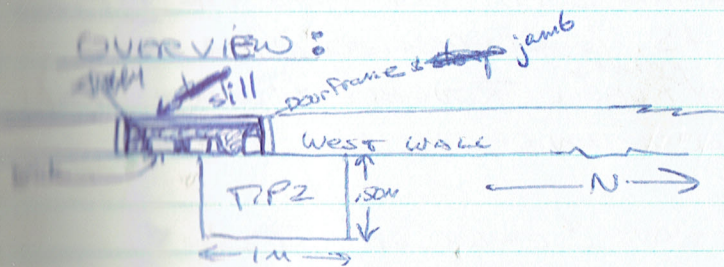 OVERVIEW:
sill
Doorframe & jamb
WEST WALL
TP2
.50m
N
1M